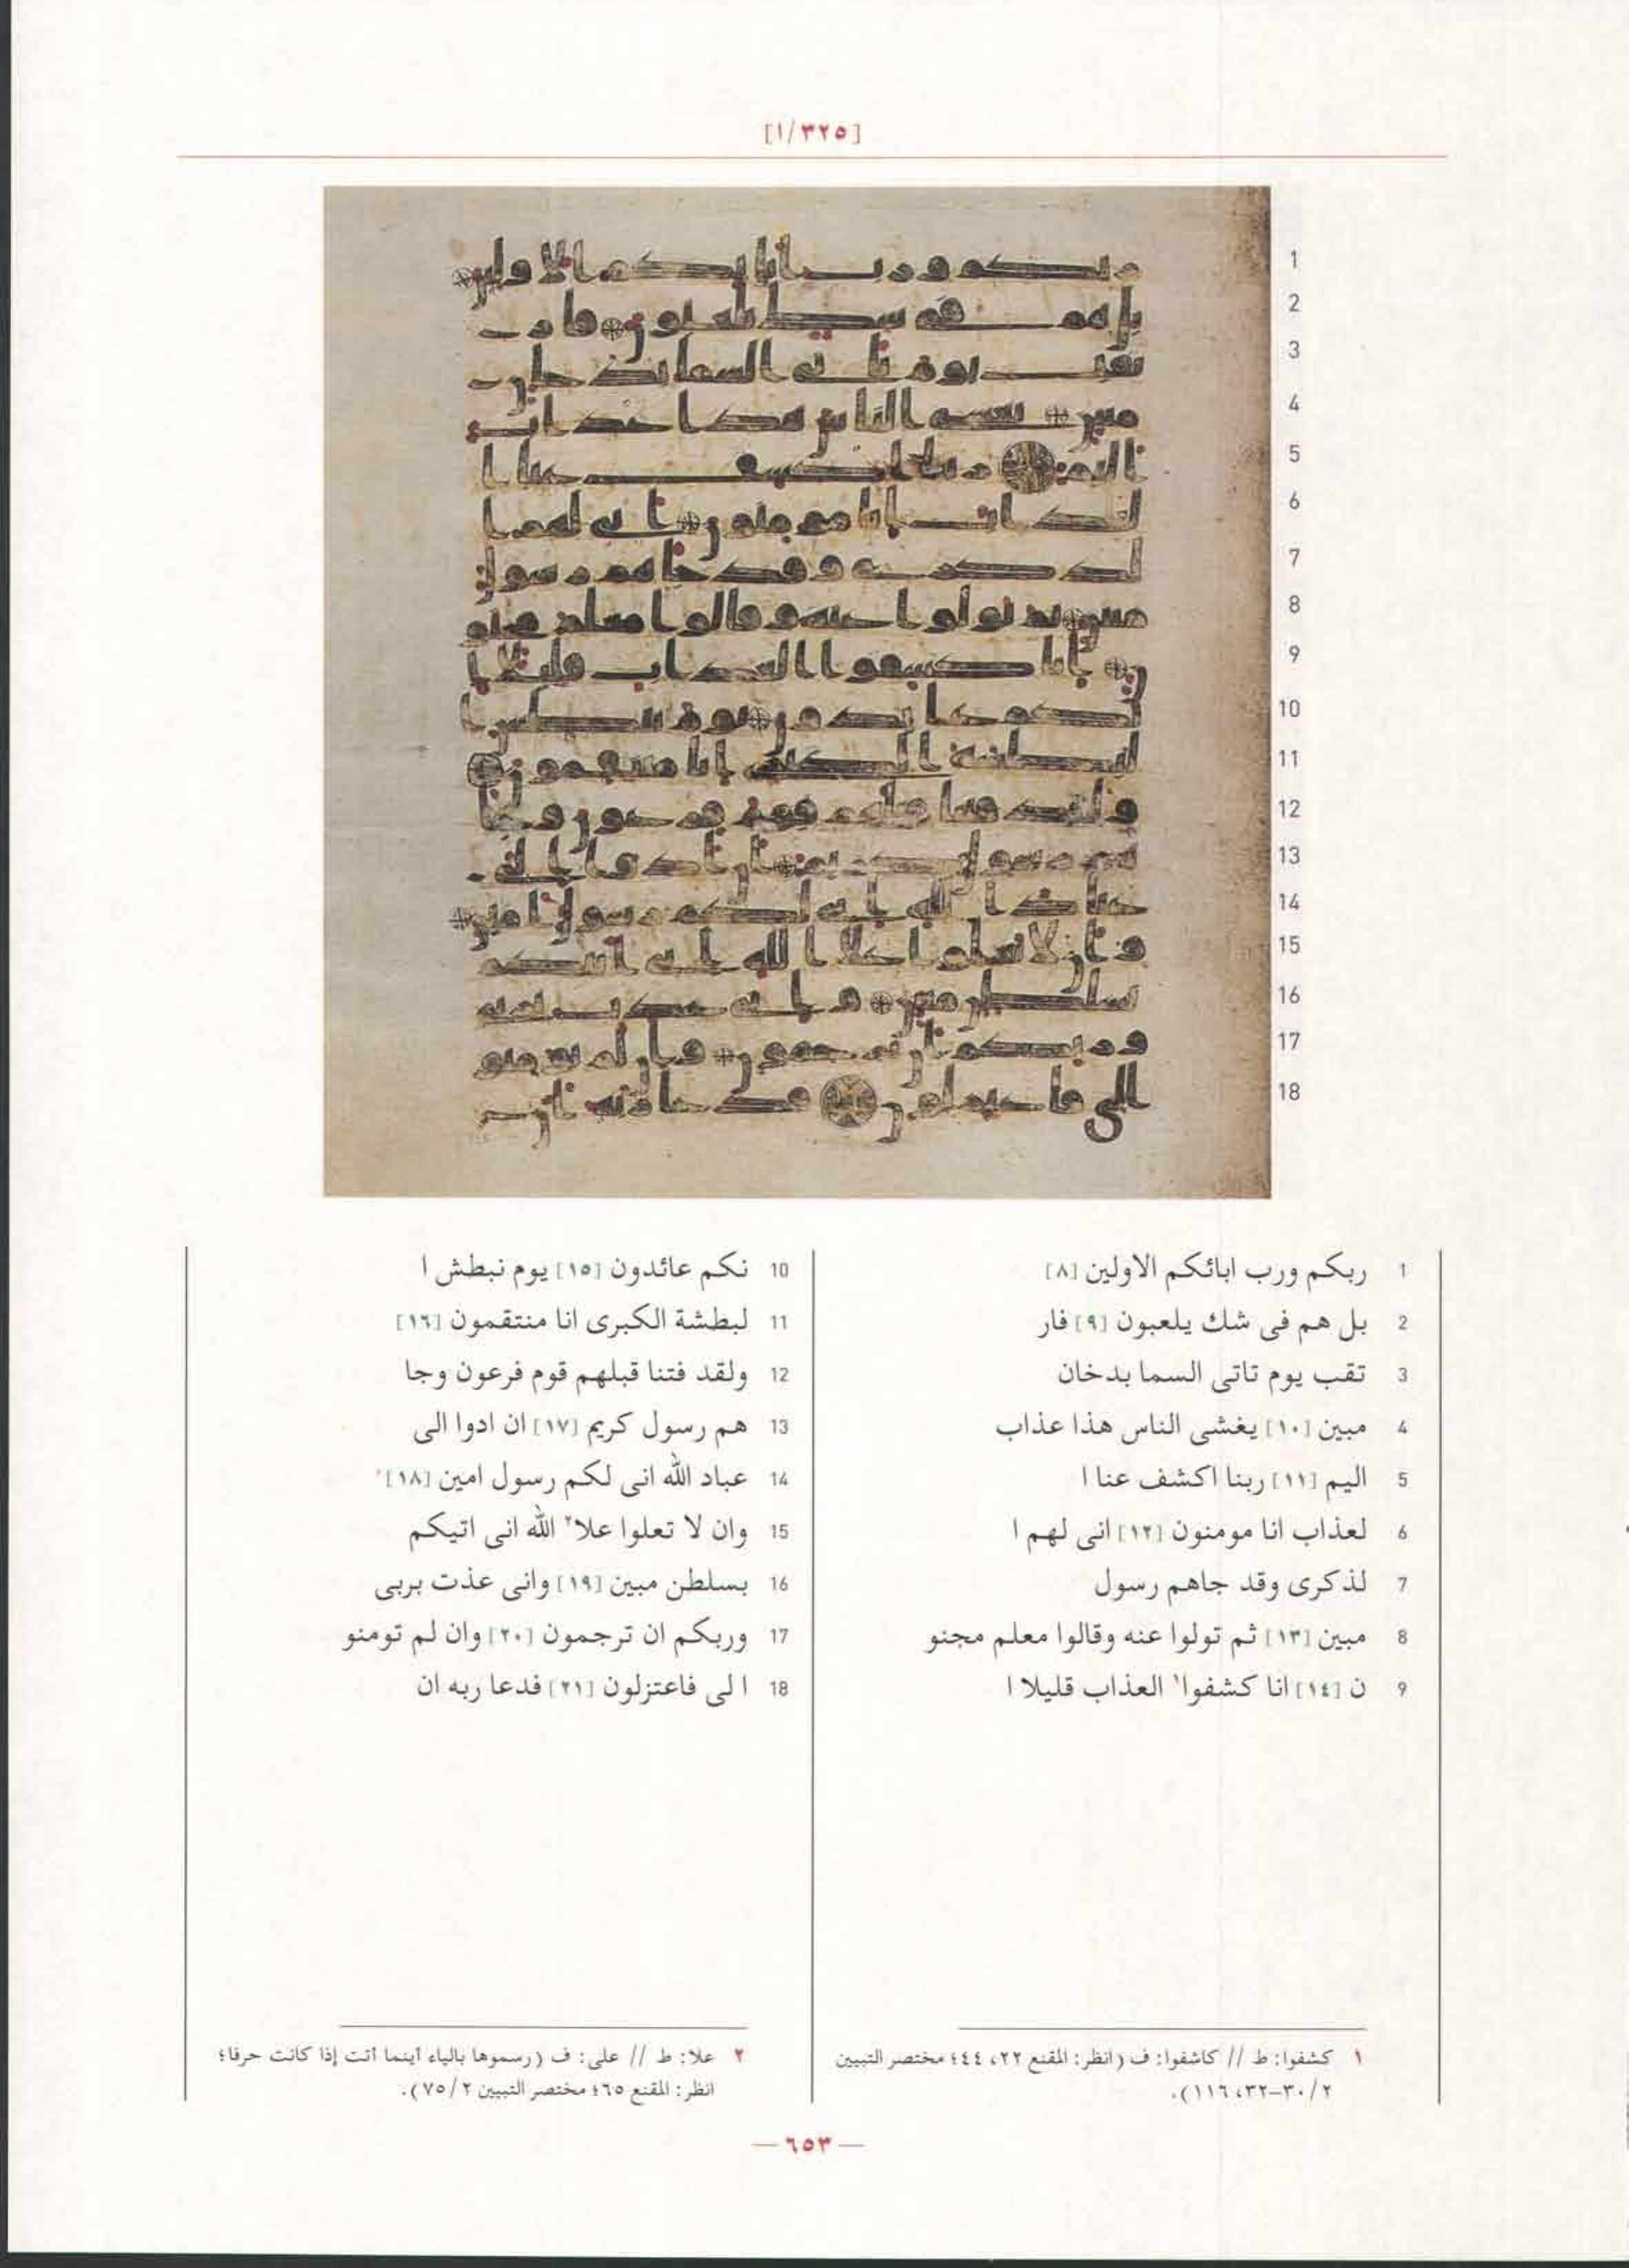 [١/٣٢٥]
1
2
3
4
5
6
7
8
9
10
11
12
13
14
15
16
17
18
1 ربكم ورب ابائكم الاولين [٨]
2 بل هم فى شك يلعبون [٩] فار
3 تقب يوم تاتى السما بدخان
4 مبين [١٠] يغشى الناس هذا عذاب
5 اليم [١١] ربنا اكشف عنا ا
6 لعذاب انا مومنون [١٢] انى لهم ا
7 لذكرى وقد جاهم رسول
8 مبين [١٣] ثم تولوا عنه وقالوا معلم مجنو
9 ن [١٤] انا كشفوا١ العذاب قليلا ا
10 نكم عائدون [١٥] يوم نبطش ا
11 لبطشة الكبرى انا منتقمون [١٦]
12 ولقد فتنا قبلهم قوم فرعون وجا
13 هم رسول كريم [١٧] ان ادوا الى
14 عباد الله انى لكم رسول امين [١٨]
15 وان لا تعلوا علا٢ الله انى اتيكم
16 بسلطن مبين [١٩] وانى عذت بربى
17 وربكم ان ترجمون [٢٠] وان لم تومنو
18 ا لى فاعتزلون [٢١] فدعا ربه ان
١ كشفوا: ط // كاشفوا: ف (انظر: المقنع ٢٢، ٤٤؛ مختصر التبيين
٢/ ٣٠–٣٢، ١١٦).
٢ علا: ط // على: ف (رسموها بالياء أينما أتت إذا كانت حرفا؛
انظر: المقنع ٦٥؛ مختصر التبيين ٢/ ٧٥).
— ٦٥٣ —